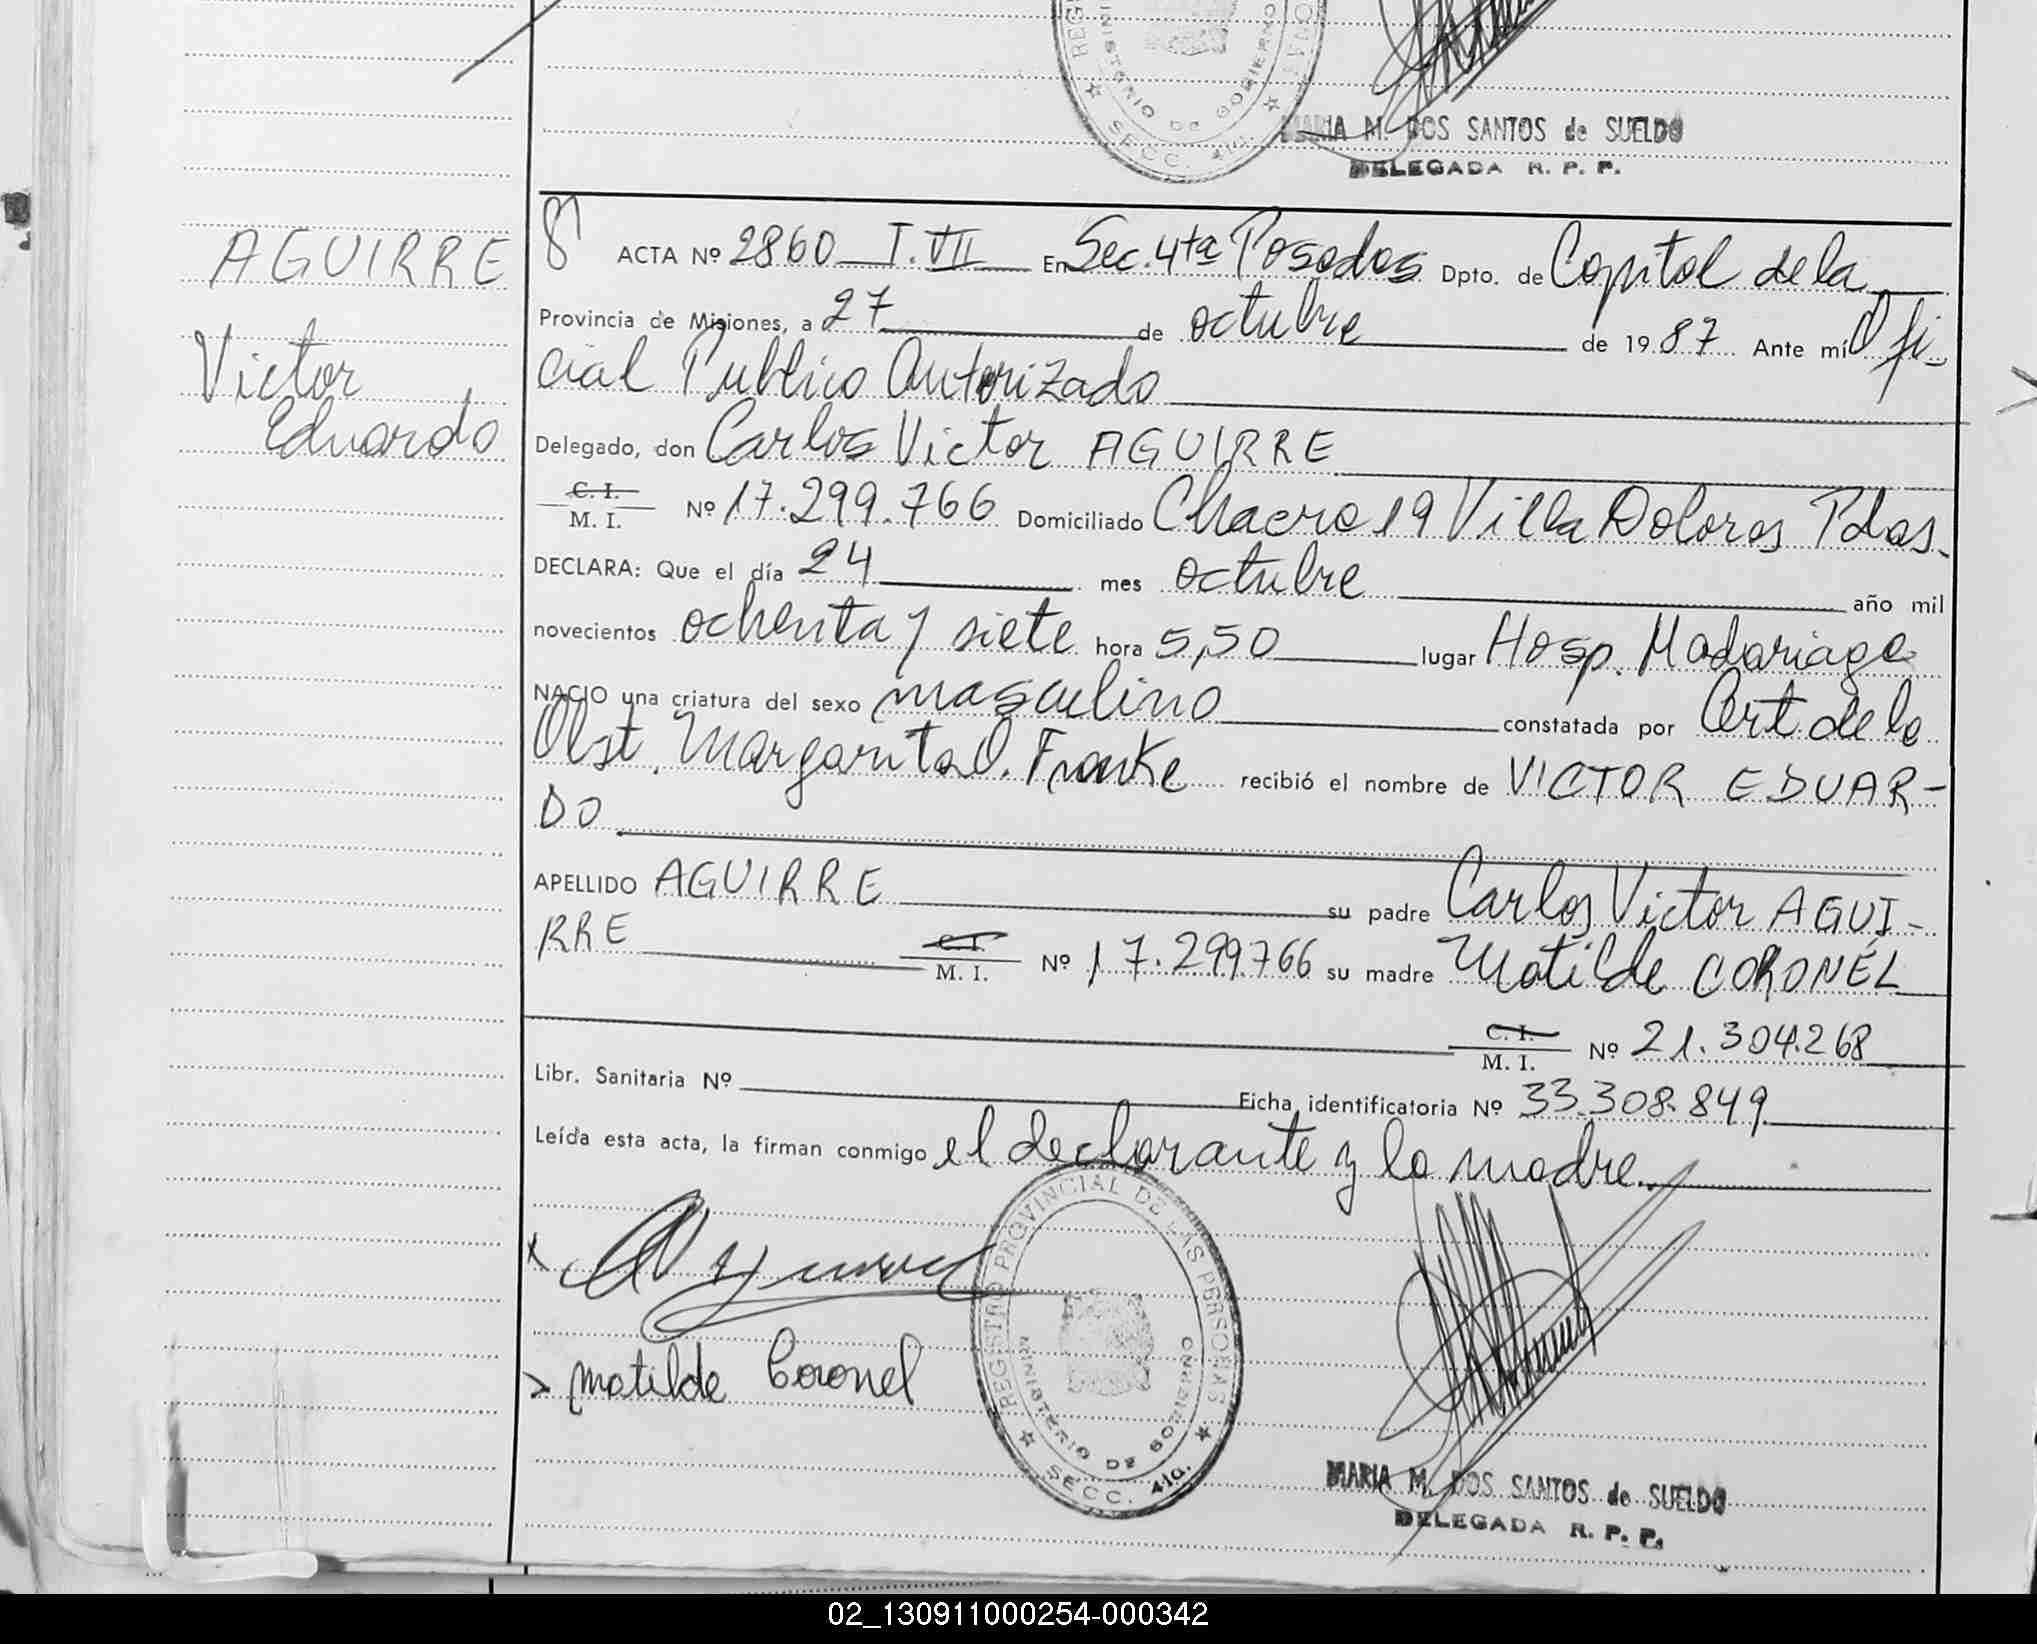 REGI
ONAS
MINISTERIO DE GOBIERNO
SECC. 4ta.
MARIA M. DOS SANTOS de SUELDO
DELEGADA R. P. P.
AGUIRRE
Victor
Eduardo
ACTA Nº 2860 T. VII En Sec. 4ta Posadas Dpto. de Capital de la
Provincia de Misiones, a 27 de octubre de 1987 Ante mí Ofi-
cial Publico Autorizado
Delegado, don Carlos Victor AGUIRRE
C. I.
M. I. Nº 17.299.766 Domiciliado Chacra 19 Villa Dolores Pdas.
DECLARA: Que el día 24 mes octubre año mil
novecientos ochenta y siete hora 5,50 lugar Hosp. Madariaga
NACIO una criatura del sexo masculino constatada por Cert de la
Obst. Margarita O. Franke recibió el nombre de VICTOR EDUAR-
DO
APELLIDO AGUIRRE su padre Carlos Victor AGUI-
RRE C. I. M. I. Nº 17.299766 su madre Matilde CORONEL
C. I.
M. I. Nº 21.304.268
Libr. Sanitaria Nº Ficha identificatoria Nº 33.308.849
Leída esta acta, la firman conmigo el declarante y la madre.
REGISTRO PROVINCIAL DE LAS PERSONAS
MINISTERIO DE GOBIERNO
SECC. 4ta.
Matilde Coronel
MARIA M. DOS SANTOS de SUELDO
DELEGADA R. P. P.
02_130911000254-000342